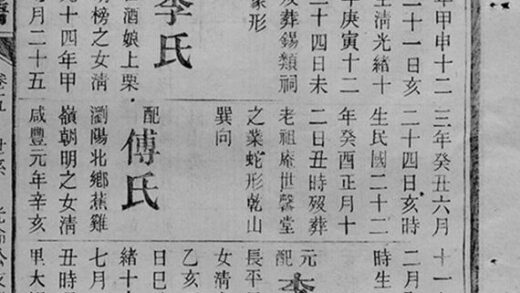 年甲申十二
二十一日亥
生清光緒十
年庚寅十二
二十四日未
歿葬錫類祠
形
李氏
酒娘上栗
明榜之女清
十四年甲
月二十五
三年癸丑六月
二十四日亥時
生民國二十二
年癸酉正月十
二日丑時歿葬
老祖庵世馨堂
之業蛇形乾山
巽向
配傅氏
瀏陽北鄉蕉雞
嶺朝明之女清
咸豐元年辛亥
十一
二月
時生
元配李
長平
女清
乙亥
日巳
緒十
七月
丑時
里大